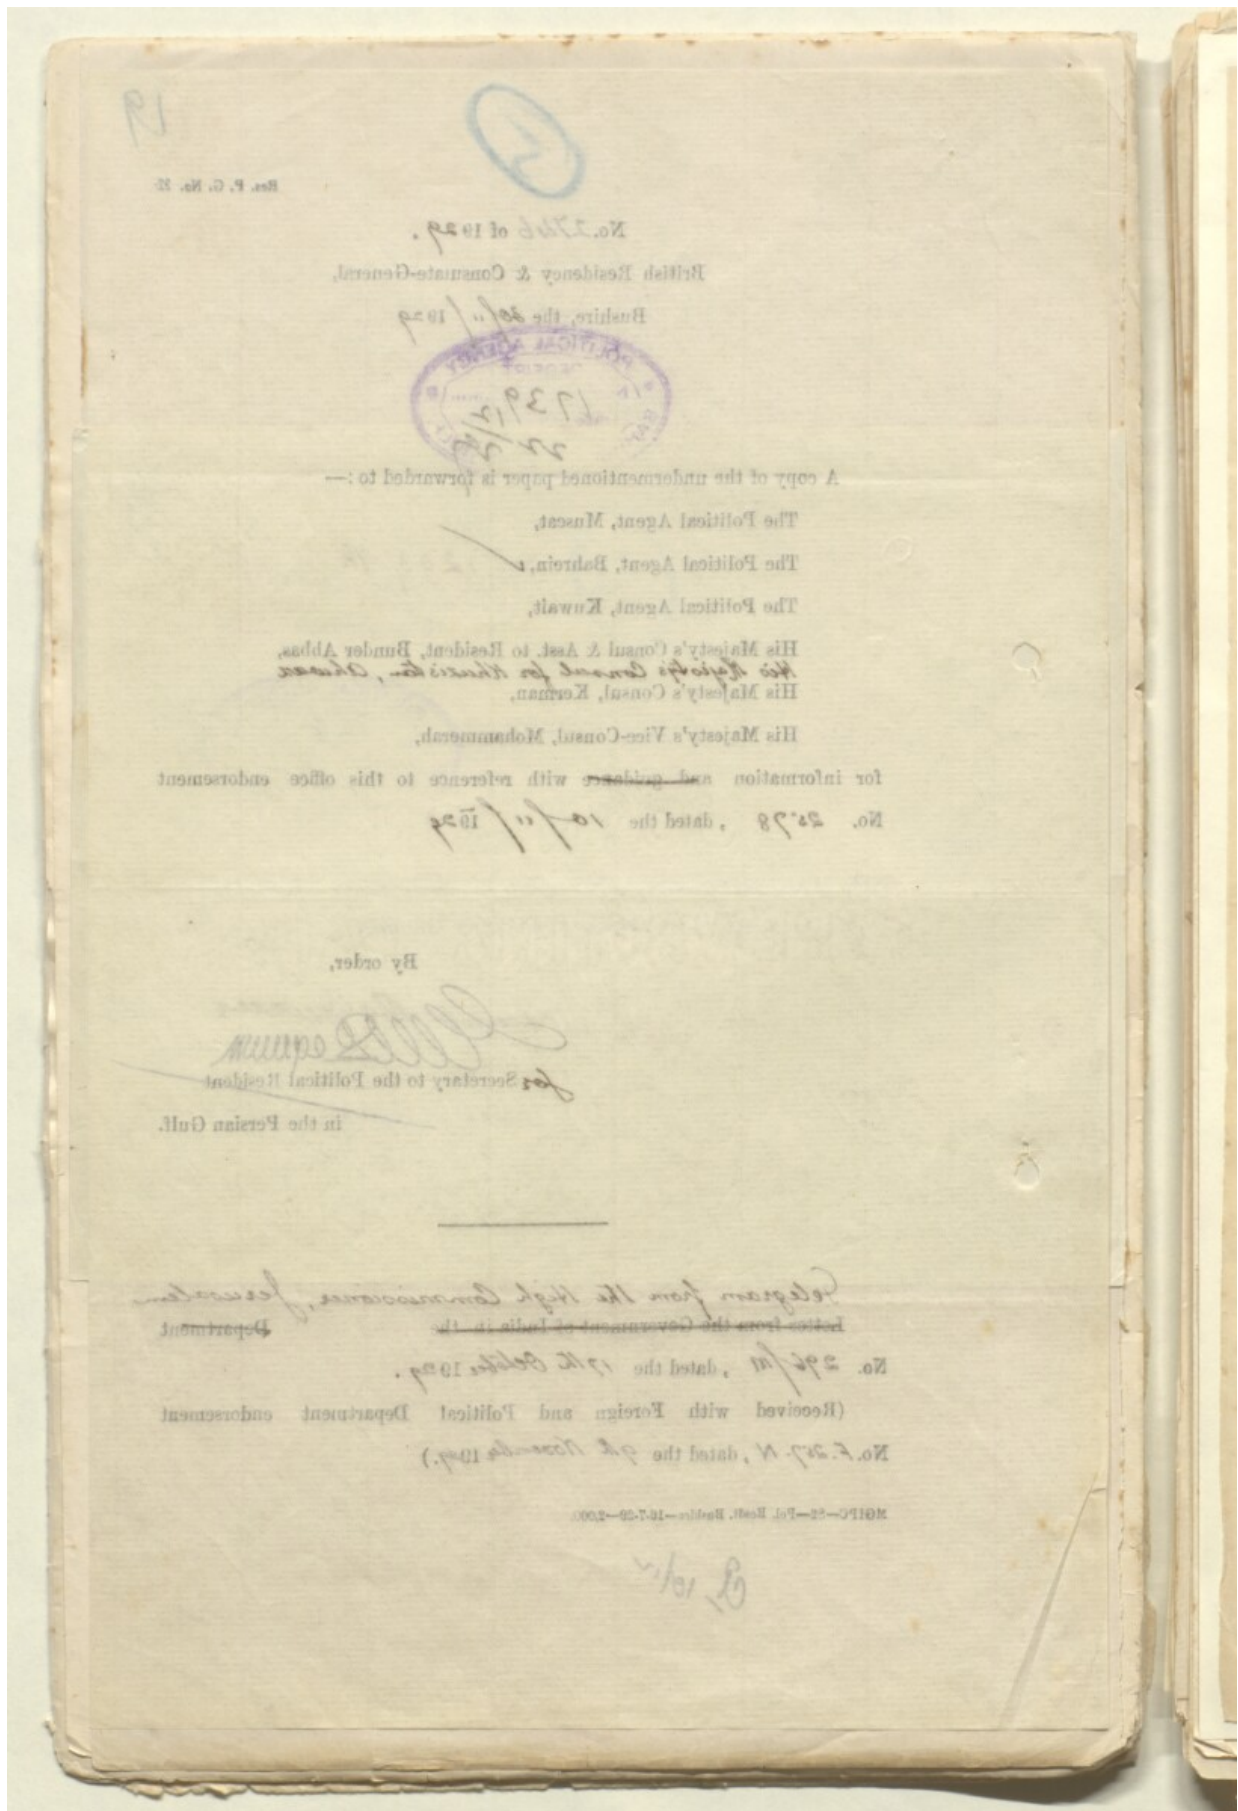 19
Res. P. G. No. 22
No. 2746 of 1929.
British Residency & Consulate-General,
Bushire, the 30/11/1929
POLITICAL AGENCY
RECEIPT
1739
A copy of the undermentioned paper is forwarded to :—
The Political Agent, Muscat,
The Political Agent, Bahrein,
The Political Agent, Kuwait,
His Majesty's Consul & Asst. to Resident, Bunder Abbas,
His Majesty's Consul for Khuzistan, Ahwaz
His Majesty's Consul, Kerman,
His Majesty's Vice-Consul, Mohammerah,
for information and guidance with reference to this office endorsement
No. 2578, dated the 10/11/1929
By order,
for Secretary to the Political Resident
in the Persian Gulf.
Telegram from the High Commissioner, Jerusalem
Letter from the Government of India in the Department
No. 296/M, dated the 17th October 1929.
(Received with Foreign and Political Department endorsement
No. F. 257. N, dated the 9th November 1929.)